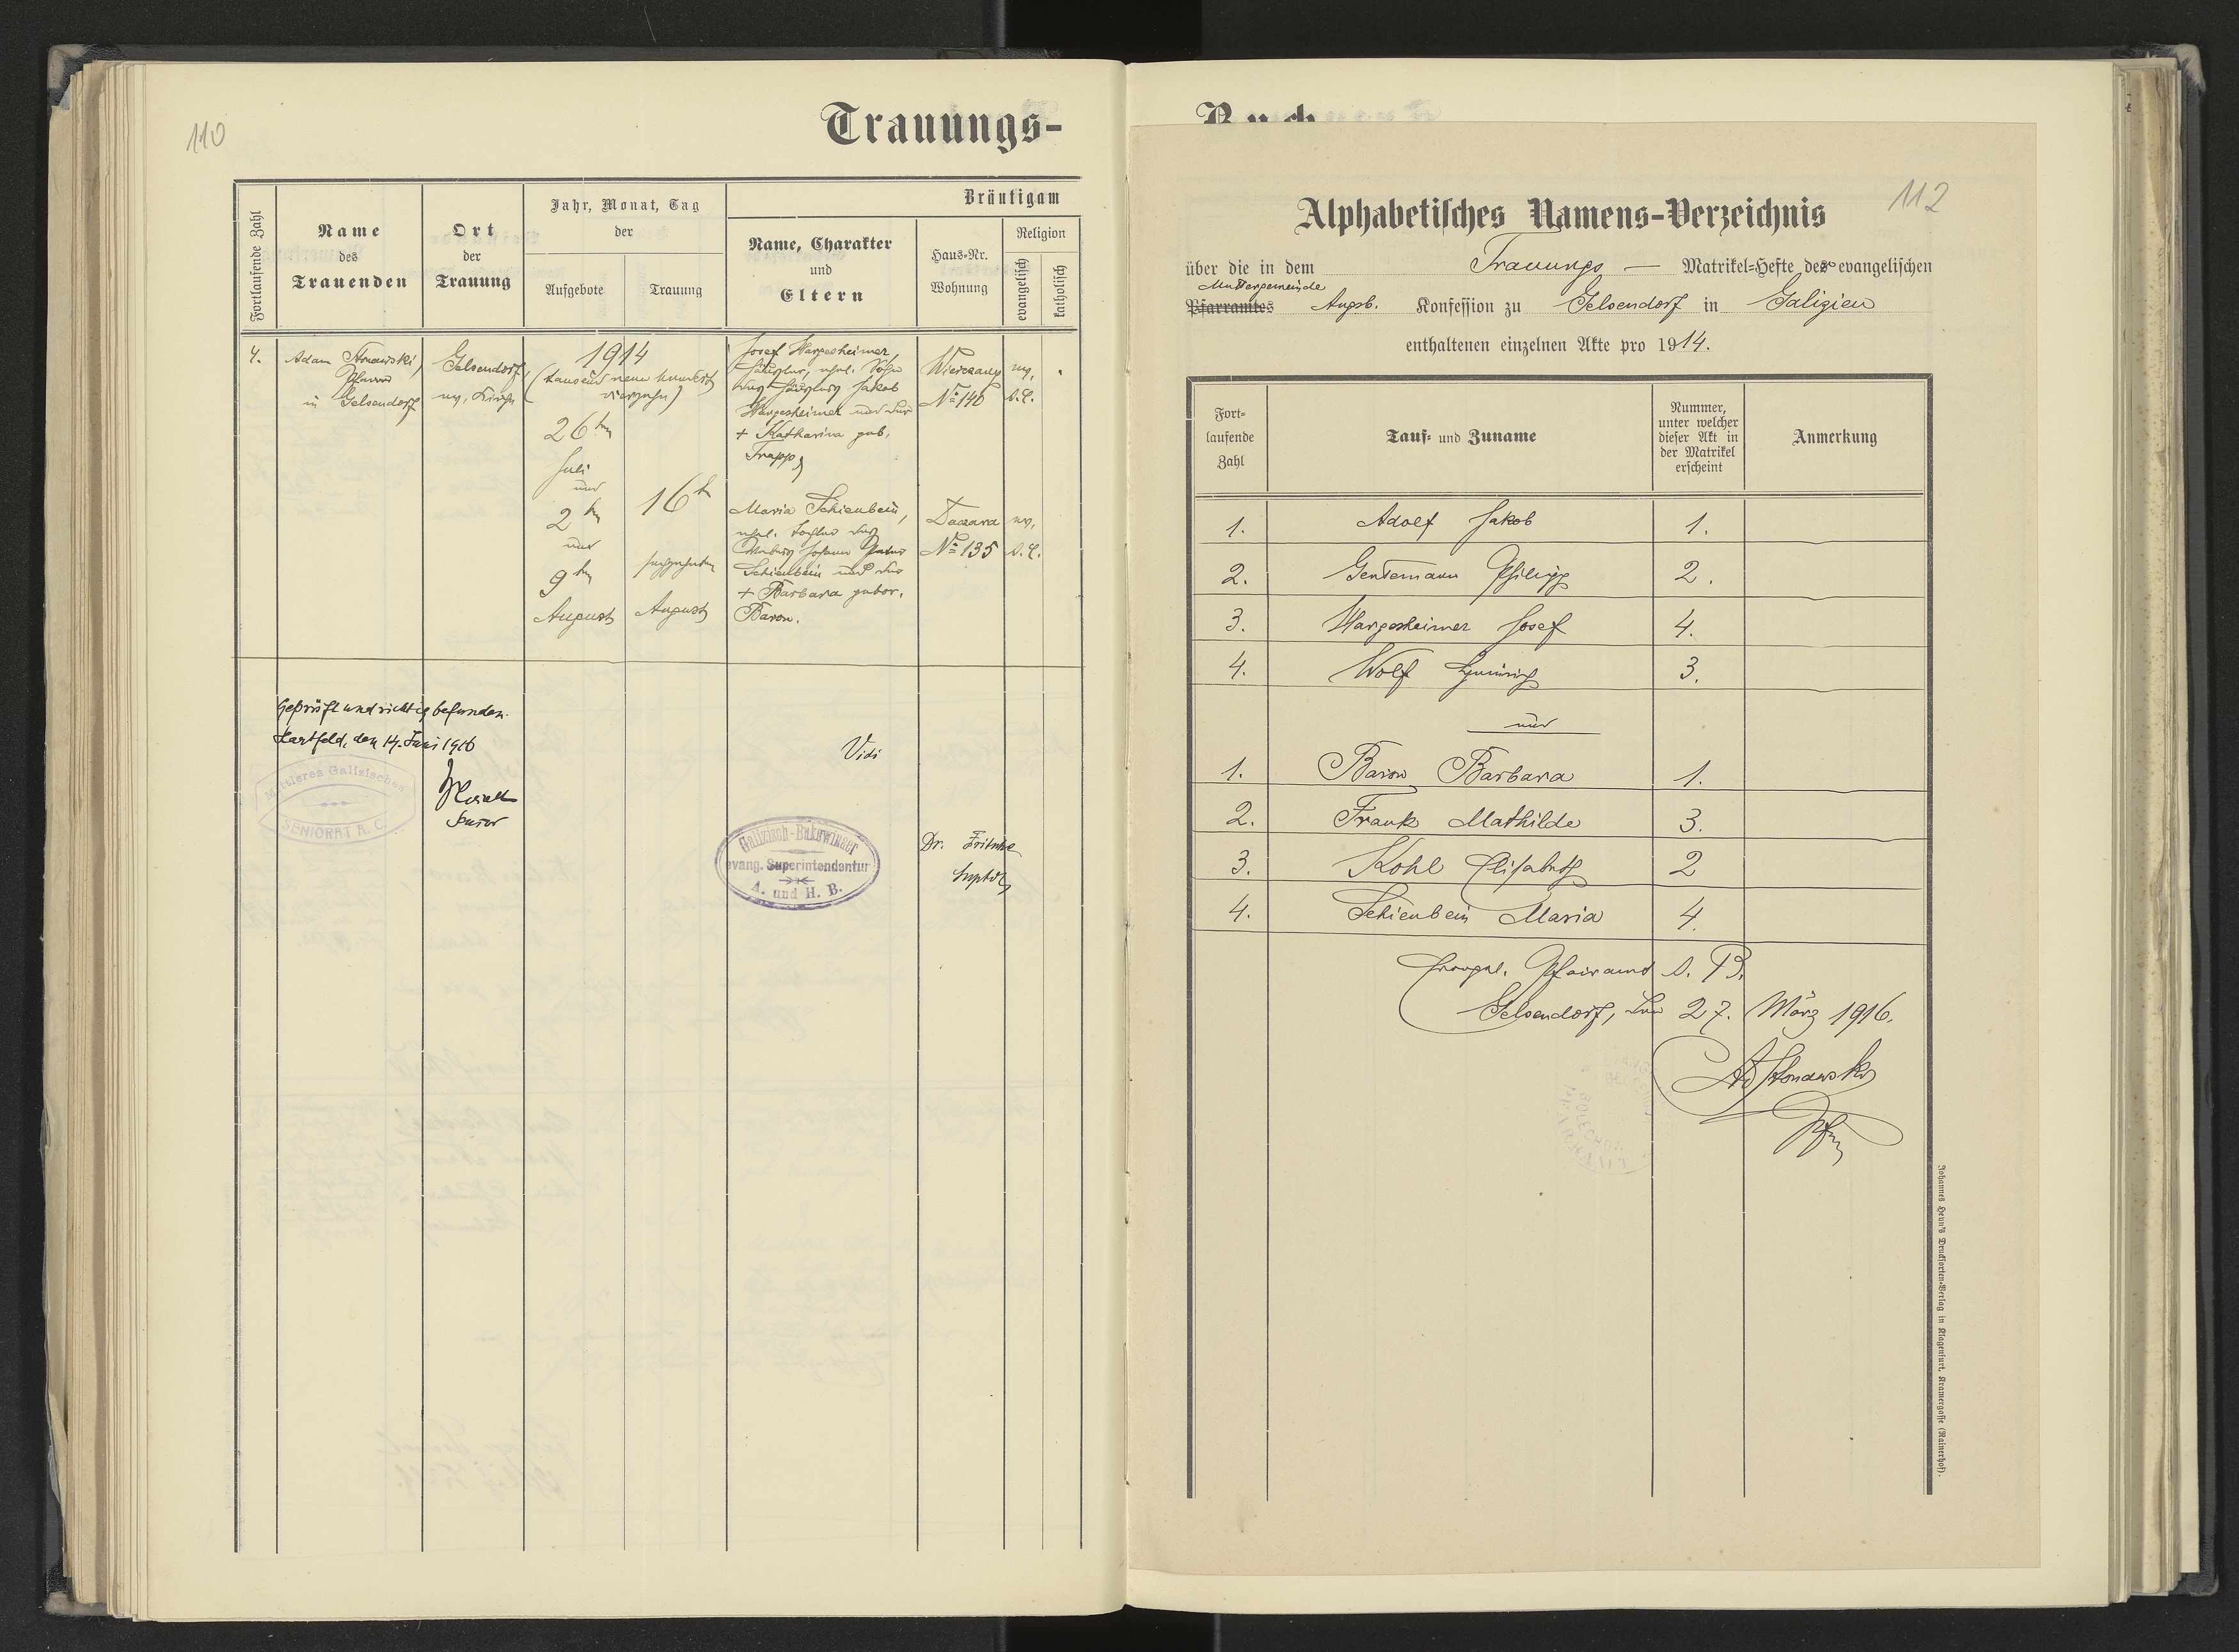 110
Trauungs-
Fortlaufende Zahl
Name
des
Trauenden
Ort
der
Trauung
Jahr, Monat, Tag
der
Aufgebote
Trauung
Bräutigam
Name, Charakter
und
Eltern
Haus-Nr.
Wohnung
Religion
evangelisch
katholisch
4.
Adam Stonawski,
Pfarrer
in Gelsendorf
Gelsendorf,
ev. Kirche
1914
(tausend neun hundert
vierzehn)
26ten
Juli
und
2ten
und
9ten
August
16te
sechzehnten
August
Josef Hargesheimer
Häusler, ehel. Sohn
des Häuslers Jakob
Hargesheimer und der
+ Katharina geb.
Trapp,
Maria Schienbein,
ehel. Tochter des
Webers Johann Peter
Schienbein und der
+ Barbara gebor.
Baron.
Wierczany
№ 146
ev.
A.C.
Daszawa
№ 135
ev.
A.C.
Geprüft und richtig befunden.
Hartfeld, den 14. Juni 1916
Senior
Mittleres Galizisches
SENIORAT A. C.
Vidi
Galizisch-Bukowinaer
evang. Superintendentur
A. und H. B.
Dr. Fritsche
Suptdt
Buch
112
Alphabetisches Namens-Verzeichnis
über die in dem Trauungs — Matrikel-Hefte der evangelischen
Muttergemeinde
Pfarramtes Augsb. Konfession zu Gelsendorf in Galizien
enthaltenen einzelnen Akte pro 1914.
Fort-
laufende
Zahl
Tauf- und Zuname
Nummer,
unter welcher
dieser Akt in
der Matrikel
erscheint
Anmerkung
1. Adolf Jakob 1.
2. Gentemann Philipp 2.
3. Hargesheimer Josef 4.
4. Wolf Heinrich 3.
und
1. Baron Barbara 1.
2. Frank Mathilde 3.
3. Kohl Elisabeth 2
4. Schienbein Maria 4.
Evangel. Pfarramt A. B.
Gelsendorf, den 27. März 1916.
Ad Stonawski
Pfr
Johannes Heyn's Drucksorten-Verlag in Klagenfurt, Kramergasse (Rainerhof).